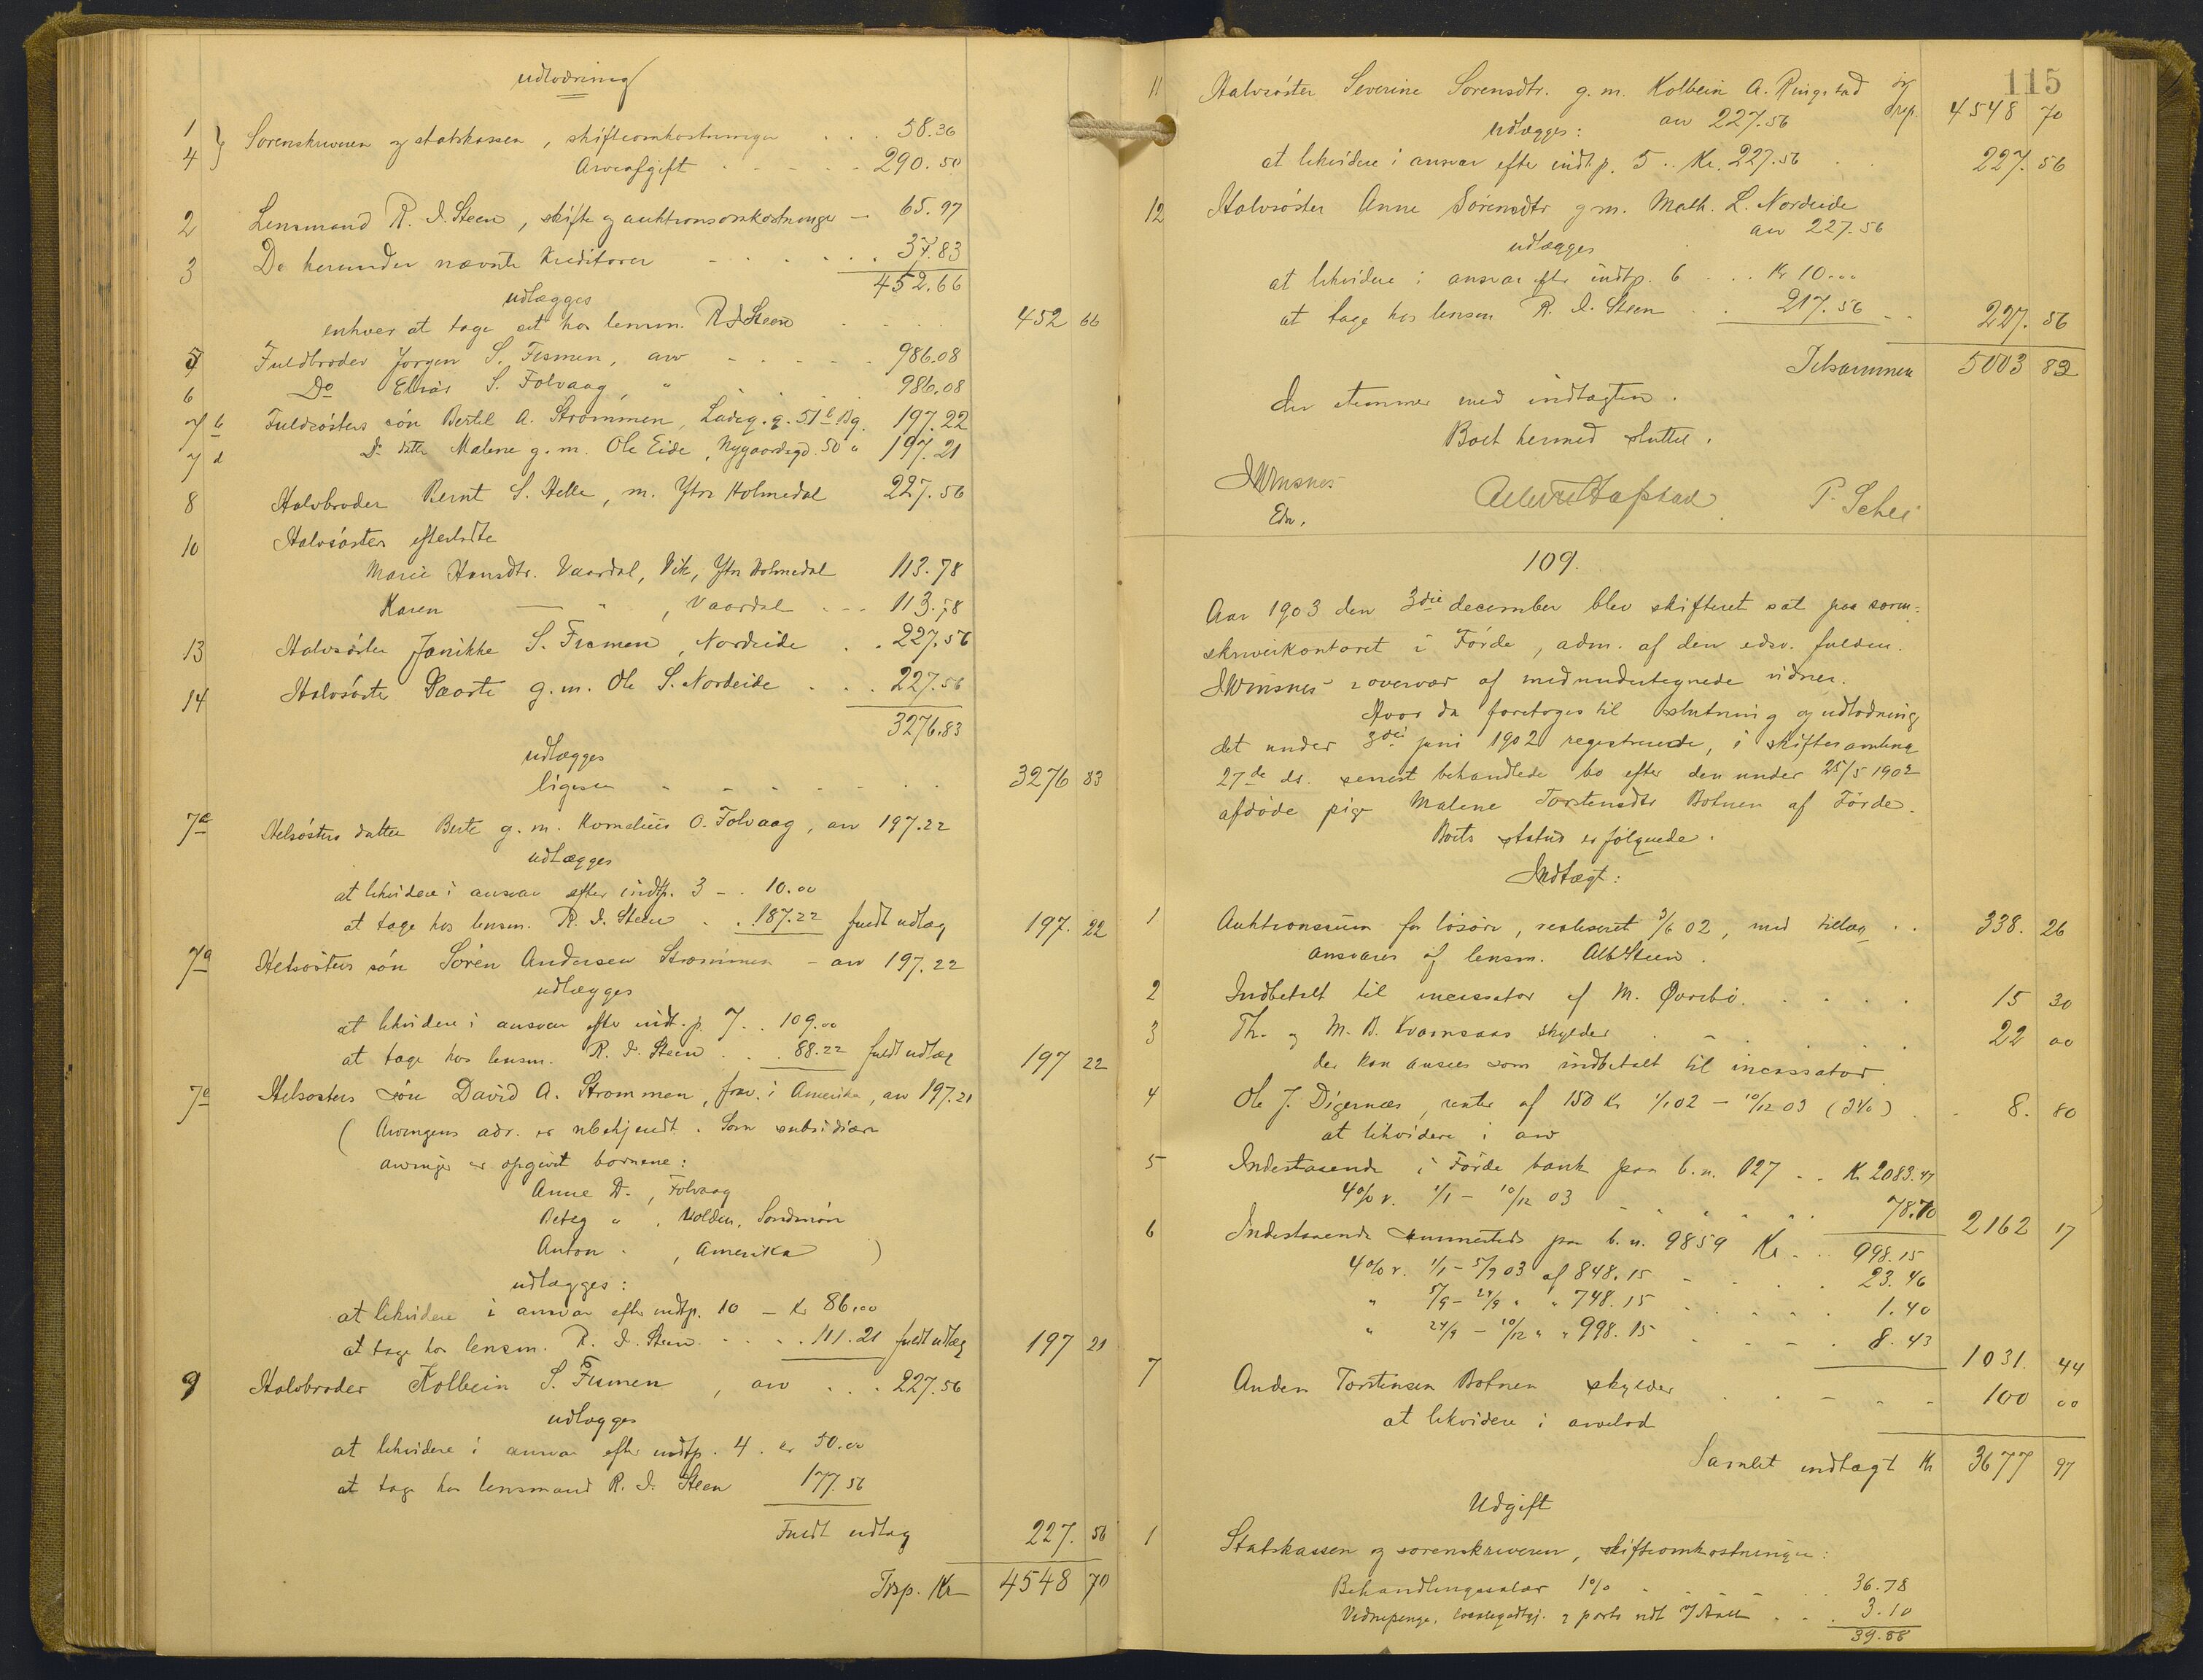 udlodning
1 } Sorenskriveren og statskassen, skifteomkostninger . . . 58.36
4 Arveafgift . . . . . 290.50
2 Lensmand R. I. Steen, skifte og auktionsomkostninger — 65.97
3 De herunder nævnte Kreditorer . . . . . . 37.83
452.66
udlægges
enhver at tage sit hos lensm. R I Steen . . . . 452 66
5 Fuldbroder Jörgen S. Fesmen, arv . . . . . 986.08
6 Do Elias S. Folvaag, " . . . . 986.08
7 b Fuldsösters sön Bertil A. Strömmen, Ladeg. g. 51 b Bg. 197.22
7 d Do datter Malene g. m. Ole Eide, Nygaardsgd. 50 " 197.21
8 Halvbroder Bernt S. Helle, m. Ytre Holmedal 227.56
10 Halvsöster efterladte
Marie Hansdtr. Vaardal, Vik, Ytre Holmedal 113.78
Karen — " , Vaardal . . . 113.78
13 Halvsöster Janikke S. Fesmen, Nordeide . . 227.56
14 Halvsöster Daarte g. m. Ole S. Nordeide . . . 227.56
3276.83
udlægges
ligesaa . . . . . . . 3276 83
7a Helsösters datter Berte g. m. Kornelius O. Folvaag, arv 197.22
udlægges
at likvidere i ansvar efter indtp. 3 - . 10.00
at tage hos lensm. R. I. Steen . . 187.22 fuldt udlæg 197. 22
7 Helsösters sön Sören Andersen Strömmen - arv 197.22
udlægges
at likvidere i ansvar efter indt. p. 7 . . 109.00
at tage hos lensm. R. I. Steen . . . 88.22 fuldt udlæg 197 22
7 Helsösters sön David A. Strömmen, frav. i Amerika, arv 197.21
( Arvingens adr. er ubekjendt. Som subsidiære
arvinger er opgivet börnene:
Anne D., Folvaag
" , Volden, Söndmör
Anton " , Amerika )
udlægges:
at likvidere i ansvar efter indtp. 10 - Kr 86.00
at tage hos lensm. R. I. Steen . . . . 111.21 fuldt udlæg 197 21
9 Halvbroder Kolbein S. Fesmen, arv . . . 227.56
udlægges
at likvidere i ansvar efter indtp. 4 . kr 50.00
at tage hos lensmand R. I. Steen 177.56
Fuldt udlæg 227. 56
Trsp. Kr 4548 70
115
11 Halvsöster Severine Sörensdtr. g. m. Kolbein A. Ringstad
arv 227.56 Trsp. 4548 70
udlægges:
at likvidere i ansvar efter indt. p. 5 . . Kr. 227.56 . . 227. 56
12 Halvsöster Anne Sörensdtr g. m. Math. L. Nordeide
arv 227.56
udlægges
at likvidere i ansvar efter indtp. 6 . . . Kr 10.00
at tage hos lensm R. I. Steen . . 217.56 . . 227. 56
Tilsammen 5003 82
der stemmer med indtægten.
Boet hermed sluttet.
P. Schei
Edv.
109.
Aar 1903 den 3die december blev skifteret sat paa soren-
skriverkontoret i Förde, adm. af den edsv. fuldm.
i overvær af medundertegnede vidner.
Hvor da foretoges til slutning og udlodning
det under 3die juni 1902 registrerede, i skiftesamling
27de ds. senest behandlede bo efter den under 25/5 1902
afdöde pige Malene Torstensdtr Botnen af Förde.
Boets status er fölgende.
Indtægt:
1 Auktionssum for lösöre, realiseret 3/6 02, med tillæg . . 338. 26
ansvares af lensm. Alb Steen.
2 Indbetalt til incassator af M. Övrebö . . . . . 15 30
3 Th. og M. B. Kvamsaas skylder . . . . . 22 00
der kan ansees som indbetalt til incassator.
4 Ole J. Digernæs, renter af 150 Kr 1/1 02 - 10/12 03 (3%) . . 8. 80
at likvidere i arv
5 Indestaaende i Förde bank paa b. n. 127 . . Kr 2083.47
4% r. 1/1 - 10/12 03 . . . . . 78.70 2162 17
6 Indestaaende sammesteds paa b. n. 9859 Kr . . 998.15
4% r. 1/1 - 5/9 03 af 848.15 . . . . 23.46
" 5/9 - 24/9 " " 748.15 . . . . . 1.40
" 24/9 - 10/12 " " 998.15 . . . 8.43 1031. 44
7 Anders Torstensen Botnen skylder . . . . . 100 00
at likvidere i arvelod
Samlet indtægt Kr 3677 97
Udgift
1 Statskassen og sorenskriveren, skifteomkostninger:
Behandlingssalær 1% . . . . . . 36.78
Vidnepenge, lokalegodtgj. 3.10
39.88